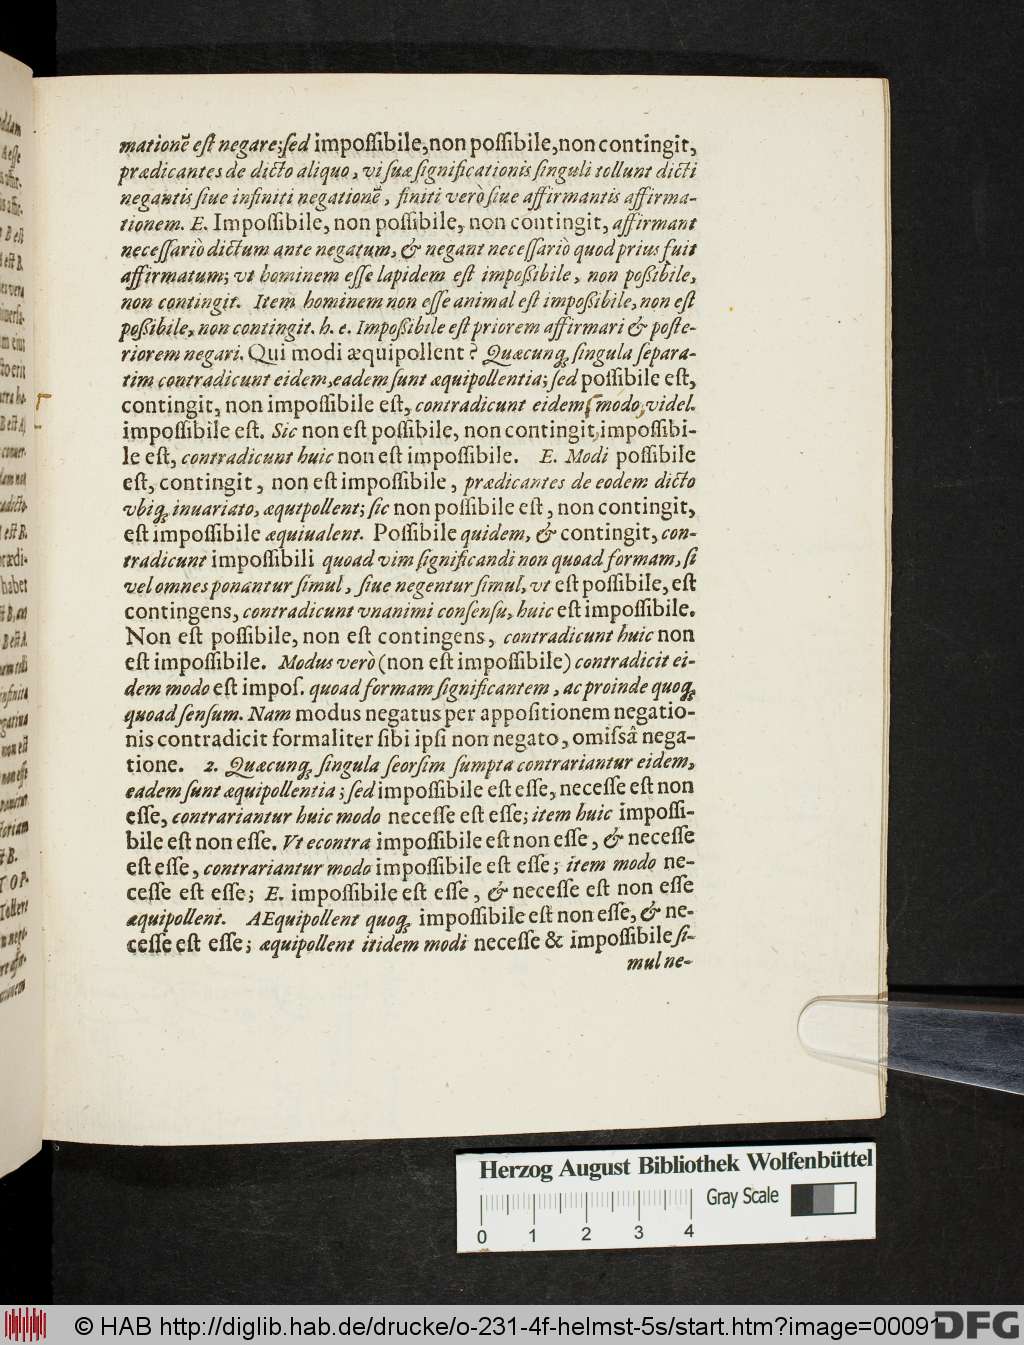 mationē eſt negare; ſed impoſſibile, non poſſibile, non contingit,
prædicantes de dicto aliquo, vi ſuæ ſignificationis ſinguli tollunt dicti
negantis ſiue infiniti negationē, finiti verò ſiue affirmantis affirma-
tionem. E. Impoſſibile, non poſſibile, non contingit, affirmant
neceſſariò dictum ante negatum, & negant neceſſariò quod prius fuit
affirmatum; vt hominem eſſe lapidem eſt impoßibile, non poßibile,
non contingit. Item hominem non eſſe animal eſt impoßibile, non eſt
poßibile, non contingit. h. e. Impoßibile eſt priorem affirmari & poſte-
riorem negari. Qui modi æquipollent? Quæcunq; ſingula ſepara-
tim contradicunt eidem, eadem ſunt æquipollentia; ſed poſſibile eſt,
contingit, non impoſſibile eſt, contradicunt eidem modo, videl.
impoſſibile eſt. Sic non eſt poſſibile, non contingit, impoſſibi-
le eſt, contradicunt huic non eſt impoſſibile. E. Modi poſſibile
eſt, contingit, non eſt impoſſibile, prædicantes de eodem dicto
vbiq; inuariato, æquipollent; ſic non poſſibile eſt, non contingit,
eſt impoſſibile æquiualent. Poſſibile quidem, & contingit, con-
tradicunt impoſſibili quoad vim ſignificandi non quoad formam, ſi
vel omnes ponantur ſimul, ſiue negentur ſimul, vt eſt poſſibile, eſt
contingens, contradicunt vnanimi conſenſu, huic eſt impoſſibile.
Non eſt poſſibile, non eſt contingens, contradicunt huic non
eſt impoſſibile. Modus verò (non eſt impoſſibile) contradicit ei-
dem modo eſt impoſ. quoad formam ſignificantem, ac proinde quoq;
quoad ſenſum. Nam modus negatus per appoſitionem negatio-
nis contradicit formaliter ſibi ipſi non negato, omiſsâ nega-
tione. 2. Quæcunq; ſingula ſeorſim ſumpta contrariantur eidem,
eadem ſunt æquipollentia; ſed impoſſibile eſt eſſe, neceſſe eſt non
eſſe, contrariantur huic modo neceſſe eſt eſſe; item huic impoſſi-
bile eſt non eſſe. Vt econtra impoſſibile eſt non eſſe, & neceſſe
eſt eſſe, contrariantur modo impoſſibile eſt eſſe; item modo ne-
ceſſe eſt eſſe; E. impoſſibile eſt eſſe, & neceſſe eſt non eſſe
æquipollent. AEquipollent quoq; impoſſibile eſt non eſſe, & ne-
ceſſe eſt eſſe; æquipollent itidem modi neceſſe & impoſſibile ſi-
mul ne-
Herzog August Bibliothek Wolfenbüttel
Gray Scale
0 1 2 3 4
© HAB http://diglib.hab.de/drucke/o-231-4f-helmst-5s/start.htm?image=00091
DFG